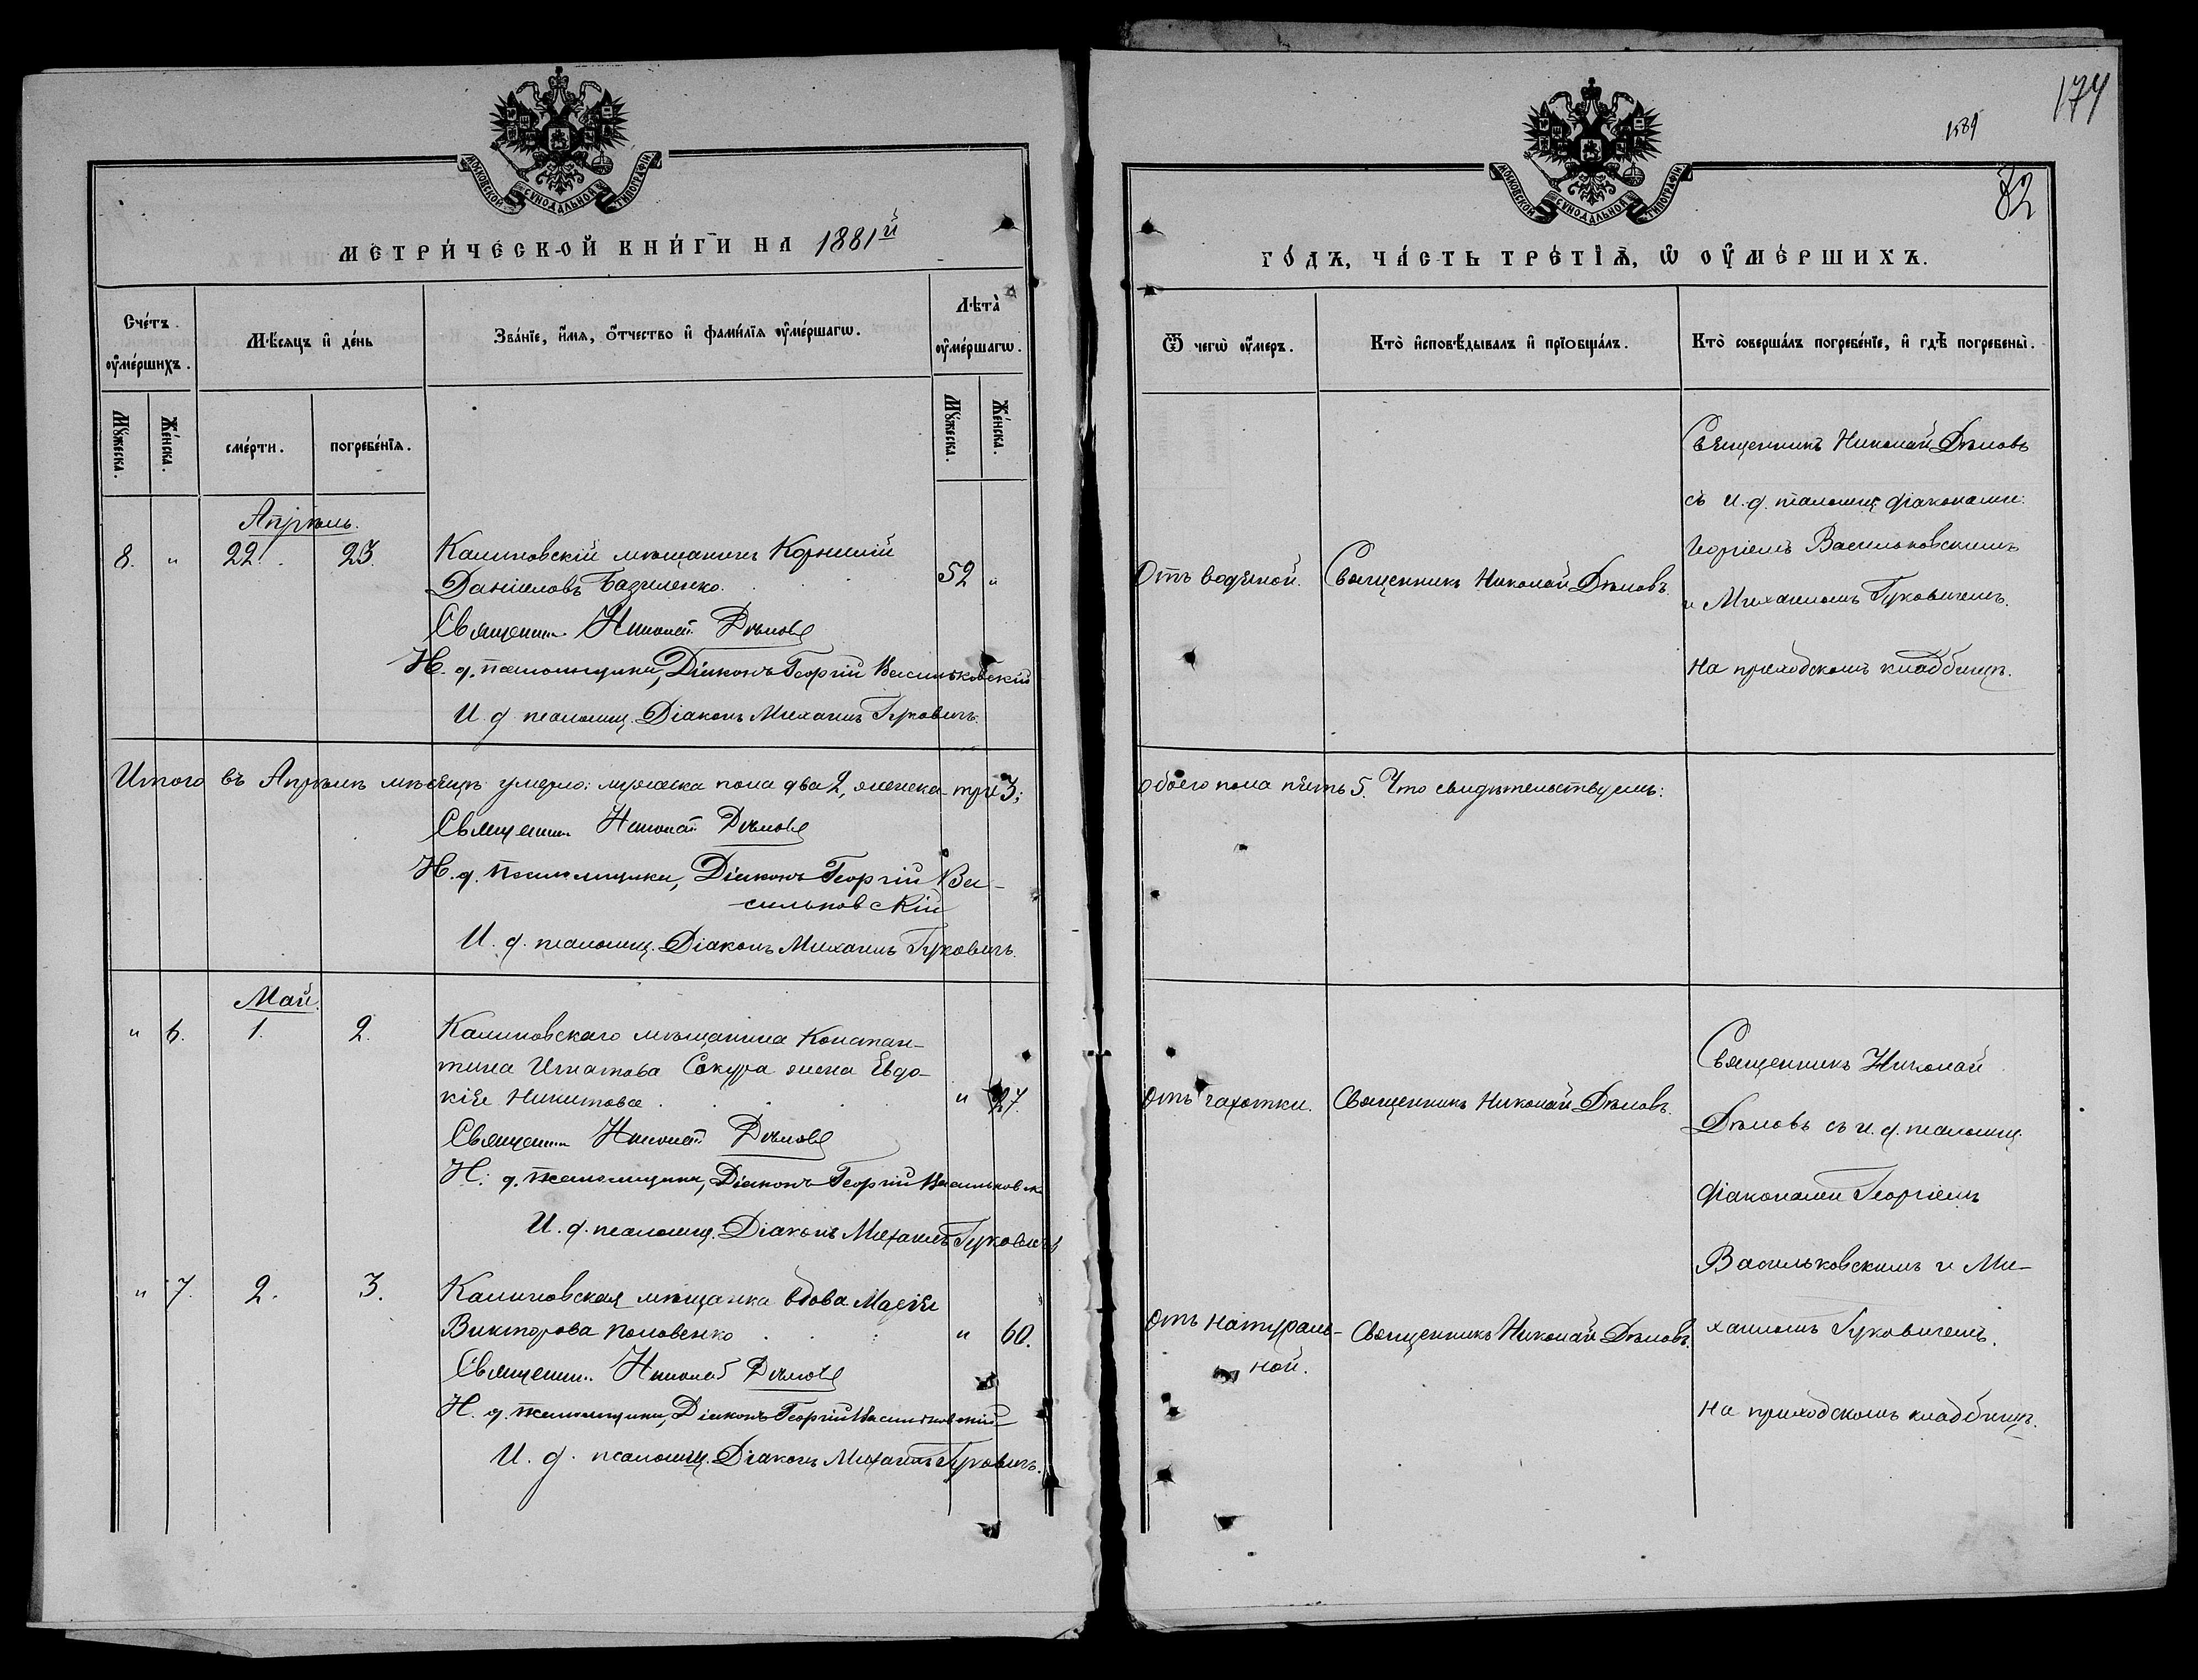 174
1589
72
МОСКОВСКОЙ СѴНОДАЛЬНОЙ ТИПОГРАФІИ
МЕТРИ́ЧЕСКОЙ КНИ́ГИ НА 1881й
Сче́тъ ᲂу҆ме́ршихъ.
Мѣ́сяцъ и҆ де́нь
Зва́нїе, и҆́мѧ, ѻ҆́тчество и҆ фами́лїѧ ᲂу҆ме́ршагѡ.
Лѣта̀ ᲂу҆ме́ршагѡ.
Мꙋ́жеска.
Же́нска.
сме́рти.
погребе́нїѧ.
Мꙋ́жеска.
Же́нска.
Апрѣль.
8. " 22. 23. Калиновскій мѣщанинъ Корнилій
Даніиловъ Базиленко. 52 "
Священ. Николай Дѣмовъ
И. д. псаломщика, Діаконъ Георгій Васильковскій
И. д. псаломщ. Діаконъ Михаилъ Гуковичъ.
Итого въ Апрѣлѣ мѣсяцѣ умерло: мужеска пола два 2, женска три 3;
Священ. Николай Дѣмовъ
И. д. псаломщика, Діаконъ Георгій Ва-
сильковскій
И. д. псаломщ. Діаконъ Михаилъ Гуковичъ.
Май.
" 6. 1. 2. Калиновскаго мѣщанина Констан-
тина Игнатова Сокура жена Евдо-
кія Никитова " 27.
Священ. Николай Дѣмовъ
И. д. псаломщика, Діаконъ Георгій Васильковск.
И. д. псаломщ. Діаконъ Михаилъ Гуковичъ
" 7. 2. 3. Калиновская мѣщанка вдова Марія
Викторова Половенко " 60.
Священ. Николай Дѣмовъ
И. д. псаломщика, Діаконъ Георгій Васильковскій
И. д. псаломщ. Діаконъ Михаилъ Гуковичъ.
МОСКОВСКОЙ СѴНОДАЛЬНОЙ ТИПОГРАФІИ
ГО́ДЪ, ЧА́СТЬ ТРЕ́ТЇѦ, Ѡ҆ ОУ҆МЕ́РШИХЪ.
Ѿ чегѡ̀ ᲂу҆́меръ.
Кто̀ и҆сповѣ́дывалъ и҆ прїѻбща́лъ.
Кто̀ соверша́лъ погребе́нїе, и҆ гдѣ̀ погребены̀.
Отъ водяной. Священникъ Николай Дѣмовъ.
Священникъ Николай Дѣмовъ
съ и. д. псаломщ. діаконами:
Георгіемъ Васильковскимъ
и Михаиломъ Гуковичемъ.
На приходскомъ кладбищѣ.
обоего пола пять 5. Что свидѣтельствуемъ:
Отъ чахотки. Священникъ Николай Дѣмовъ.
Священникъ Николай
Дѣмовъ съ и. д. псаломщ.
діаконами Георгіемъ
Васильковскимъ и Ми-
хаиломъ Гуковичемъ.
На приходскомъ кладбищѣ.
Отъ натураль-
ной.
Священникъ Николай Дѣмовъ.